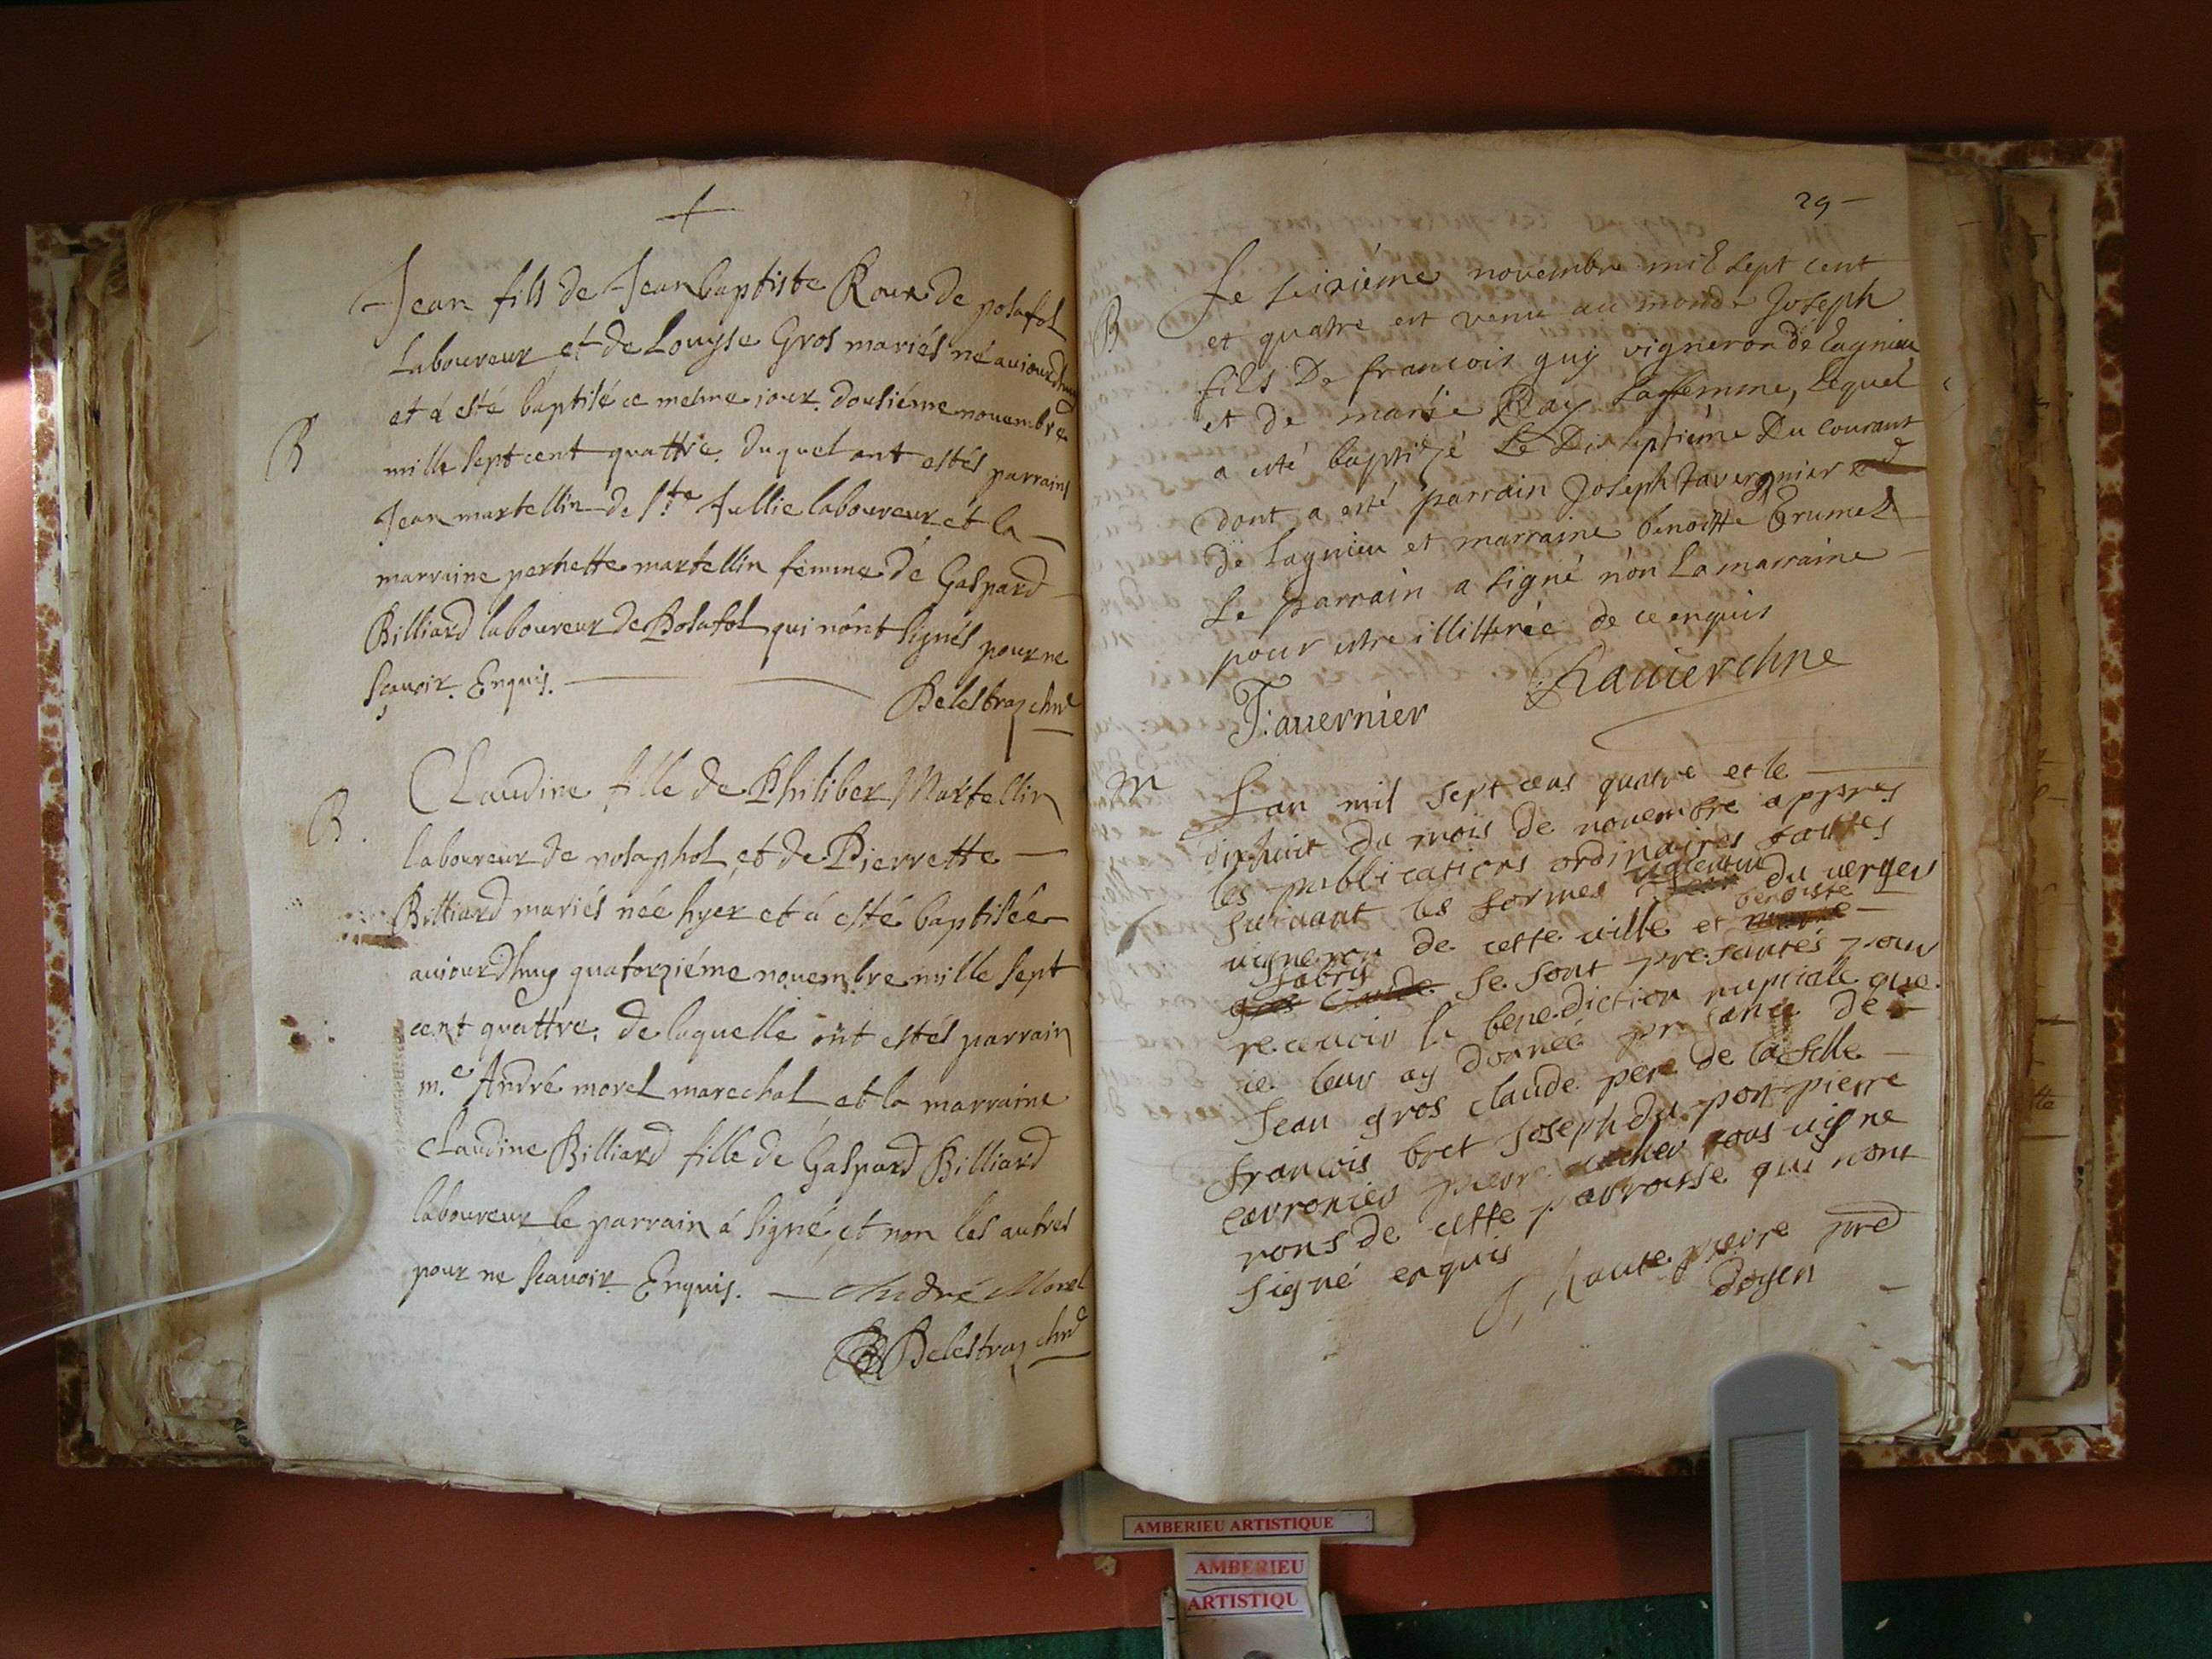 +
Jean fils de Jean baptiste Roux de posafol
Laboureur et de Louyse Gros mariés né aujourdhuy
et á esté baptisé ce mesme jour. dousiéme novembre
B
mille sept cent quattre. duquel ont estés parrains
Jean martellin de S.te Jullie laboureur et la
marraine pernette martellin femme de Gaspard
Billiard laboureur de Posafol qui n'ont signés pour ne
sçavoir. Enquis.
Belestray chne
Claudine fille de Philiber Martellin
B.
laboureur de posaphol, et de Pierrette
Billiard mariés née hyer et á esté baptisée
aujourdhuy quatorziéme novembre mille sept
cent quattre. de laquelle ont estés parrain
m.e André morel marechal et la marraine
Claudine Billiard fille de Gaspard Billiard
laboureur le parrain á signé, et non les autres
pour ne sçavoir. Enquis. — André Morel
Belestray chne
29
B
Le seiziéme novembre mil sept cent
et quatre est venu au monde Joseph
fils De francois guy vigneron de lagnieu
et de marie Ray sa femme, lequel
a esté baptizé Le Dixseptiéme Du courant
dont a esté parrain Joseph tavergnier
de lagnieu et marraine benoitte Brumel
Le parrain a signé nón La marraine
pour estre illitterée de ce enquis
Tavernier
Ravier chne
M
Lan mil sept cens quatre et le
dixhuit du mois de novembre appres
les publications ordinaires faittes
suivant les formes du verger
vigneron de cette ville et benoiste
gros claude se sont presantés pour
recevoir la benediction nuptiale que
ie leur ay donnée presance de
Jean gros claude pere de la fille
francois bret Joseph du port pierre
carronier pierre tous vigne
rons de cette parroisse qui nont
signé enquis
hautepierre pred
doyen
AMBERIEU ARTISTIQUE
AMBERIEU
ARTISTIQU